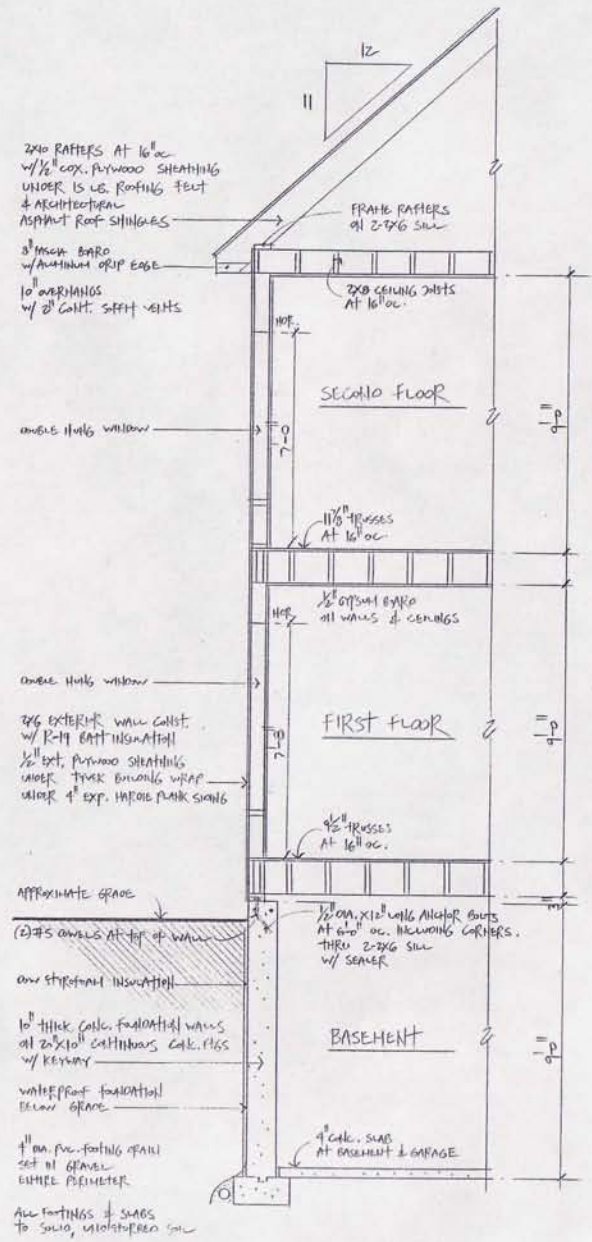 12
11
2X10 RAFTERS AT 16" OC
W/ 1/2" COX. PLYWOOD SHEATHING
UNDER 15 LB. ROOFING FELT
& ARCHITECTURAL
ASPHALT ROOF SHINGLES
FRAME RAFTERS
ON 2-2X6 SILL
8" FASCIA BOARD
W/ ALUMINUM DRIP EDGE
10" OVERHANGS
W/ 2" CONT. SOFFIT VENTS
2X8 CEILING JOISTS
AT 16" OC.
HDR.
SECOND FLOOR
DOUBLE HUNG WINDOW
7-0
11 7/8" TRUSSES
AT 16" OC
1/2" GYPSUM BOARD
ON WALLS & CEILINGS
HDR.
DOUBLE HUNG WINDOW
FIRST FLOOR
2X6 EXTERIOR WALL CONST.
W/ R-19 BATT INSULATION
1/2" EXT. PLYWOOD SHEATHING
UNDER TYVEK BUILDING WRAP
UNDER 4" EXP. HARDIE PLANK SIDING
7-8
9 1/2" TRUSSES
AT 16" OC.
APPROXIMATE GRADE
1/2" DIA. X 12" LONG ANCHOR BOLTS
AT 6'-0" OC. INCLUDING CORNERS.
THRU 2-2X6 SILL
W/ SEALER
(2) #5 DOWELS AT TOP OF WALL
DOW STYROFOAM INSULATION
10" THICK CONC. FOUNDATION WALLS
ON 20"X10" CONTINUOUS CONC. FTGS
W/ KEYWAY
BASEMENT
WATERPROOF FOUNDATION
BELOW GRADE
4" DIA. PVC. FOOTING DRAIN
SET IN GRAVEL
ENTIRE PERIMETER
4" CONC. SLAB
AT BASEMENT & GARAGE
ALL FOOTINGS & SLABS
TO SOLID, UNDISTURBED SOIL